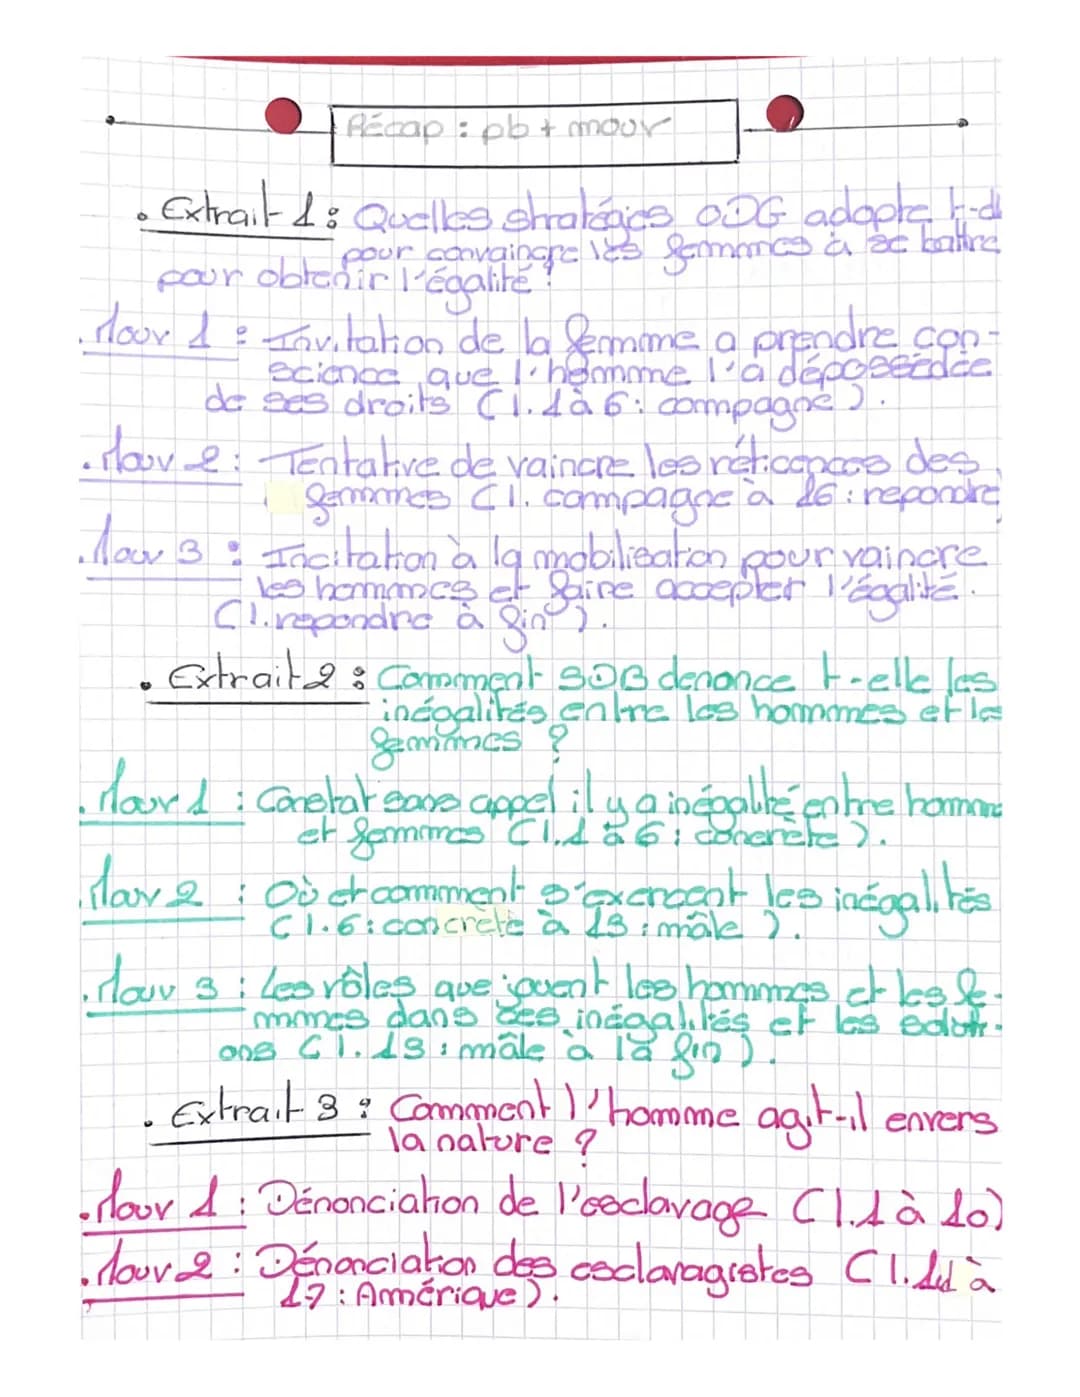 Récap : pb + mouv
. Extrait 1 : Quelles stratégies ODG adopte t-el
pour convaincre les femmes à se battre
pour obtenir l'égalité ?
. Mouv 1 : Invitation de la femme a prendre con-
science que l'homme l'a dépossédée
de ses droits (l. 1 à 6 : compagne).
. Mouv 2 : Tentative de vaincre les réticences des
femmes (l. compagne à 26 : repondre
. Mouv 3 : Incitation à la mobilisation pour vaincre
les hommes et faire accepter l'égalité.
(l. repondre à fin).
. Extrait 2 : Comment SDB denonce t-elle les
inégalités entre les hommes et les
femmes ?
. Mouv 1 : Constat sans appel il y a inégalité entre homme
et femmes (l. 1 à 6 : concrète).
. Mouv 2 : Où et comment s'exercent les inégalités
(l. 6 : concrète à 13 : mâle).
. Mouv 3 : Les rôles que jouent les hommes et les fe-
mmes dans ces inégalités et les soluti-
ons (l. 13 : mâle à la fin).
. Extrait 3 : Comment l'homme agit-il envers
la nature ?
. Mouv 1 : Dénonciation de l'esclavage (l. 1 à 10)
. Mouv 2 : Dénonciation des esclavagistes (l. 11 à
17 : Amérique).